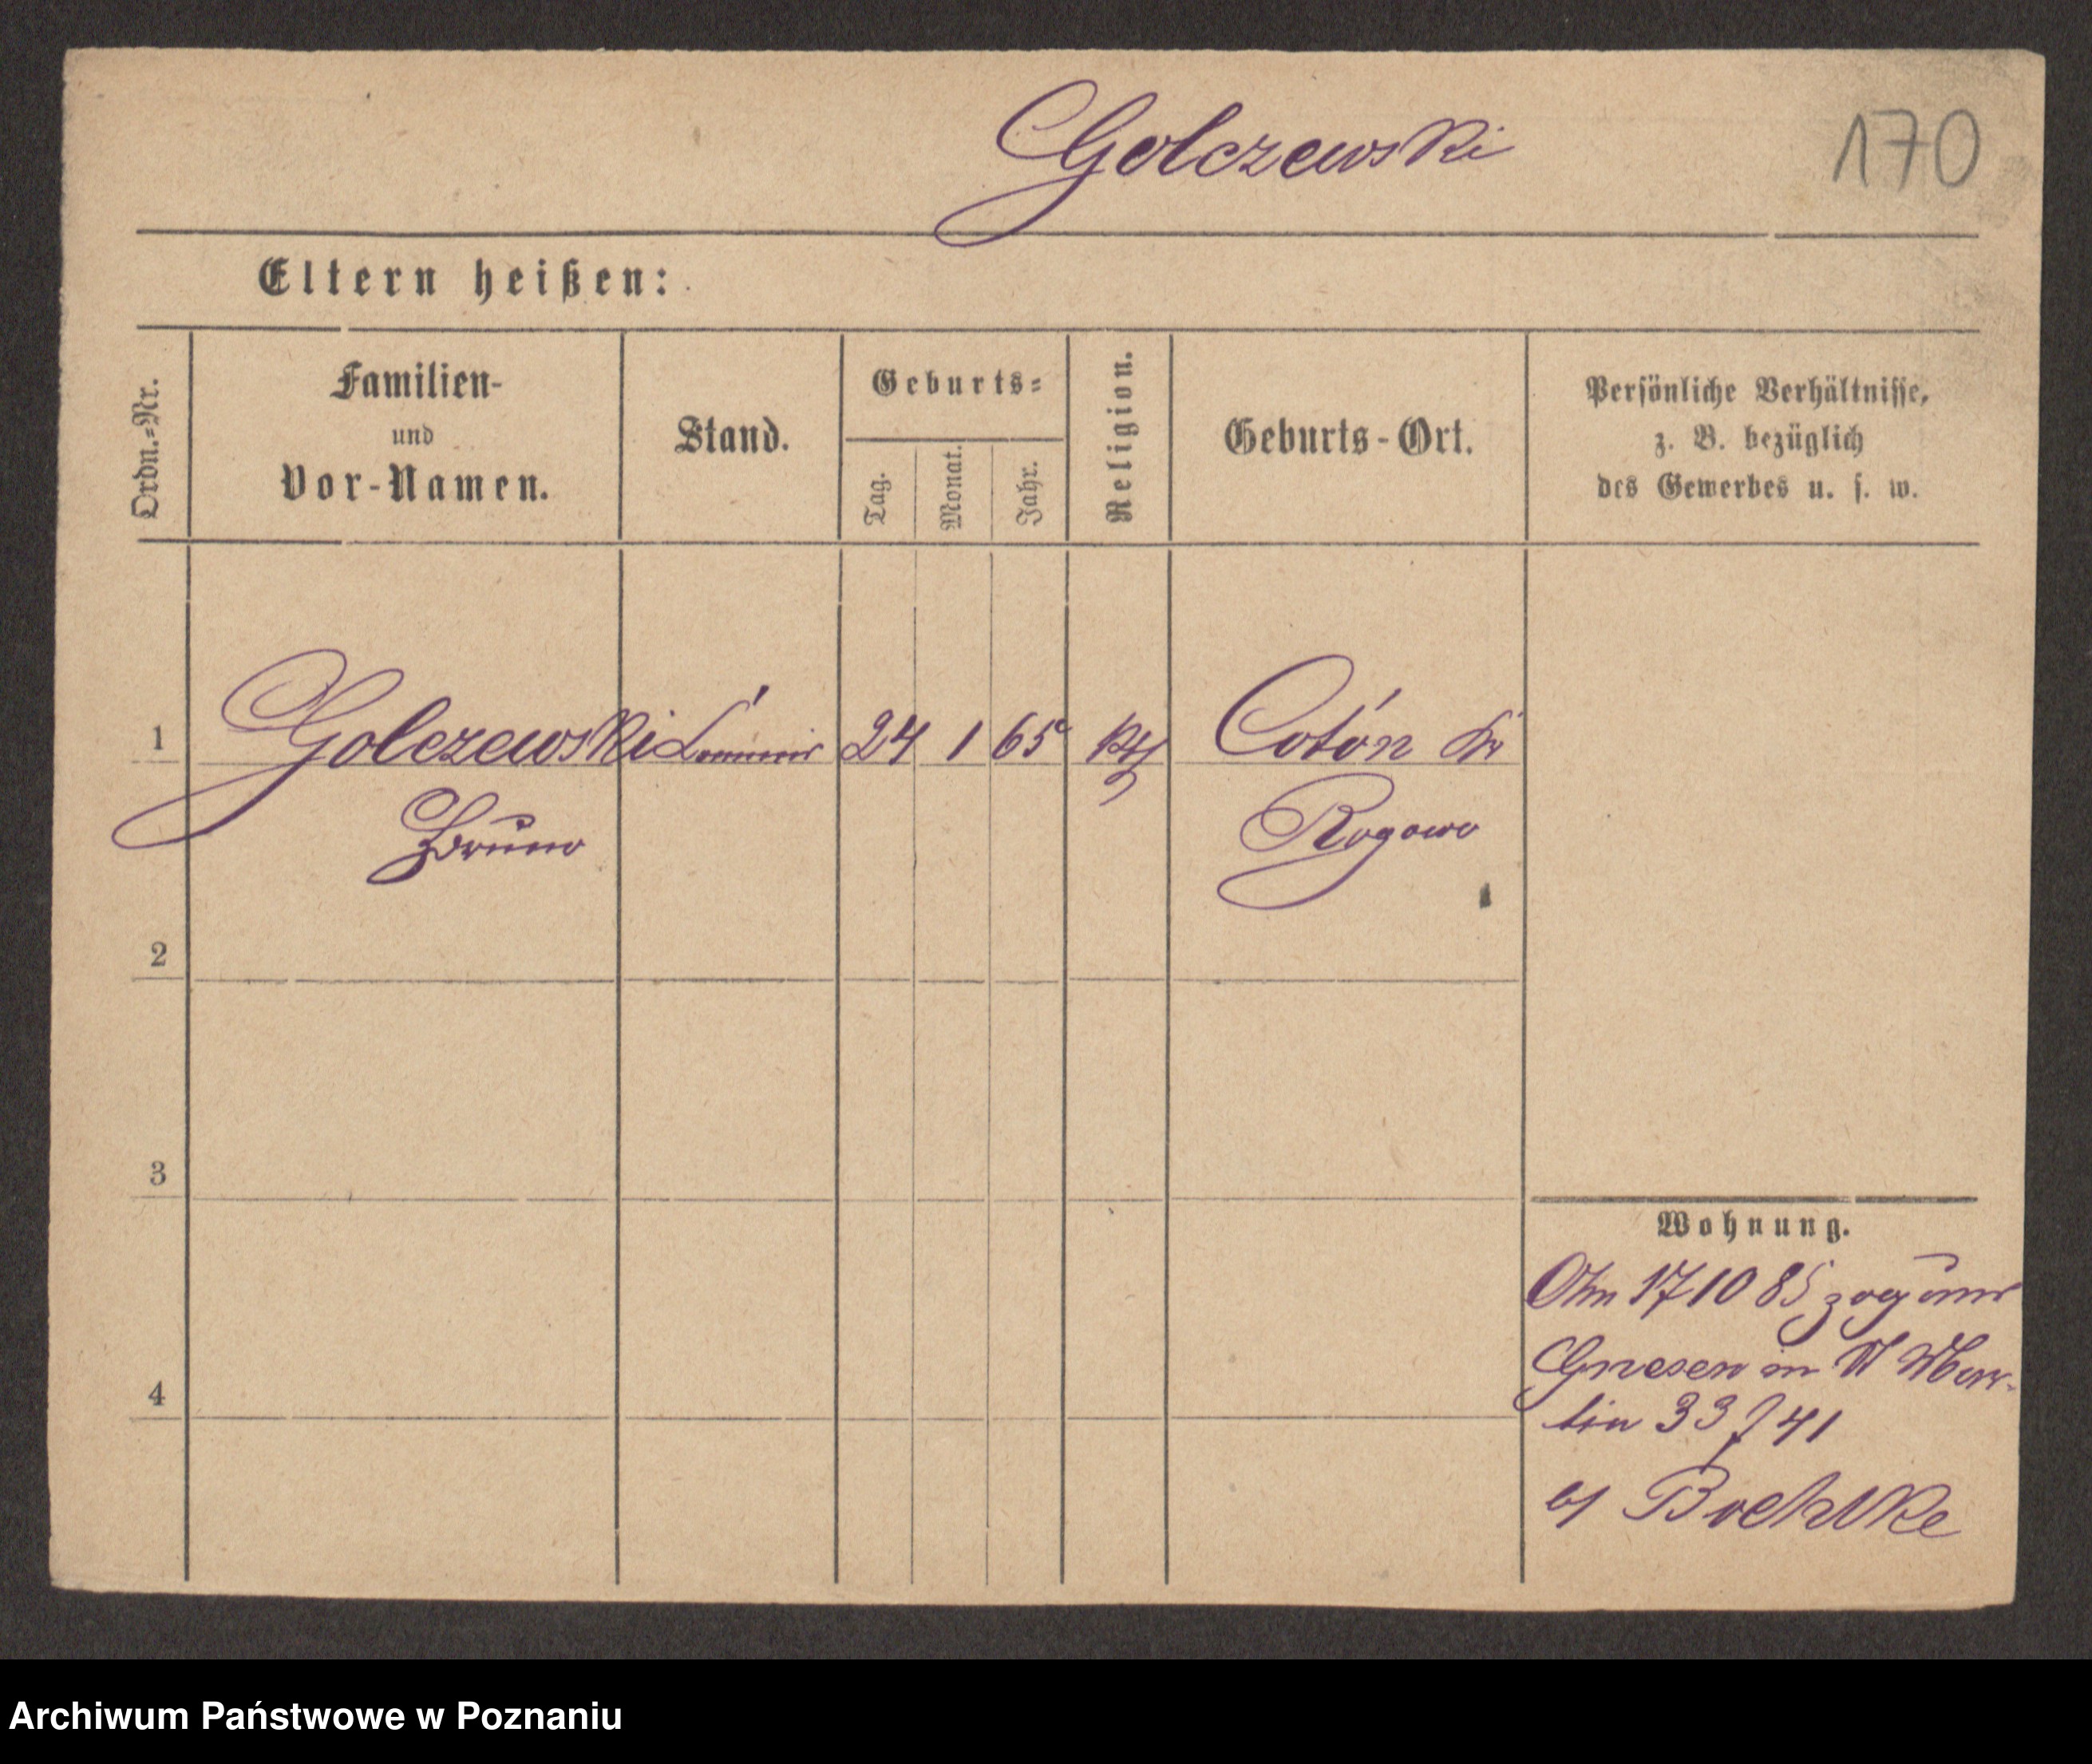 Golczewski 170
Eltern heißen:
Ordn.-Nr.
Familien-
und
Vor-Namen.
Stand.
Geburts-
Tag. Monat. Jahr.
Religion.
Geburts-Ort.
Persönliche Verhältnisse,
z. B. bezüglich
des Gewerbes u. s. w.
1 Golczewski 24 1 65 Cotón Kr
Bruno Rogowo
2
3
4
Wohnung.
17 10 85 zog
Gnesen in
tin 33 41
Archiwum Państwowe w Poznaniu